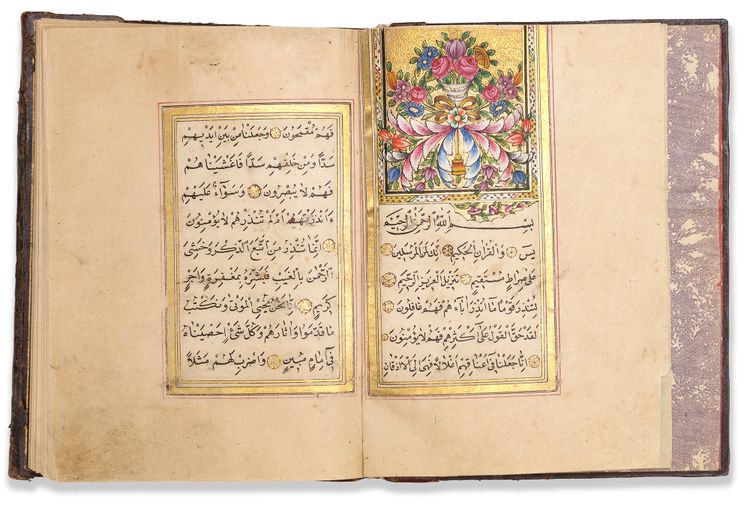 بِسْمِ اللهِ الرَّحْمٰنِ الرَّحِيمِ
يسٓ وَالْقُرْاٰنِ الْحَكِيمِ اِنَّكَ لَمِنَ الْمُرْسَلِينَ
عَلٰى صِرَاطٍ مُسْتَقِيمٍ تَنْزِيلَ الْعَزِيزِ الرَّحِيمِ
لِتُنْذِرَ قَوْمًا مَا اُنْذِرَ اٰبَاءُهُمْ فَهُمْ غَافِلُونَ
لَقَدْ حَقَّ الْقَوْلُ عَلٰى اَكْثَرِهِمْ فَهُمْ لَا يُؤْمِنُونَ
اِنَّا جَعَلْنَا فِى اَعْنَاقِهِمْ اَغْلَالًا فَهِىَ اِلَى الْاَذْقَانِ
فَهُمْ مُقْمَحُونَ وَجَعَلْنَا مِنْ بَيْنِ اَيْدِيهِمْ
سَدًّا وَمِنْ خَلْفِهِمْ سَدًّا فَاَغْشَيْنَاهُمْ
فَهُمْ لَا يُبْصِرُونَ وَسَوَاءٌ عَلَيْهِمْ
ءَاَنْذَرْتَهُمْ اَمْ لَمْ تُنْذِرْهُمْ لَا يُؤْمِنُونَ
اِنَّمَا تُنْذِرُ مَنِ اتَّبَعَ الذِّكْرَ وَخَشِىَ
الرَّحْمٰنَ بِالْغَيْبِ فَبَشِّرْهُ بِمَغْفِرَةٍ وَاَجْرٍ
كَرِيمٍ اِنَّا نَحْنُ نُحْيِى الْمَوْتٰى وَنَكْتُبُ
مَا قَدَّمُوا وَاٰثَارَهُمْ وَكُلَّ شَىْءٍ اَحْصَيْنَاهُ
فِى اِمَامٍ مُبِينٍ وَاضْرِبْ لَهُمْ مَثَلًا